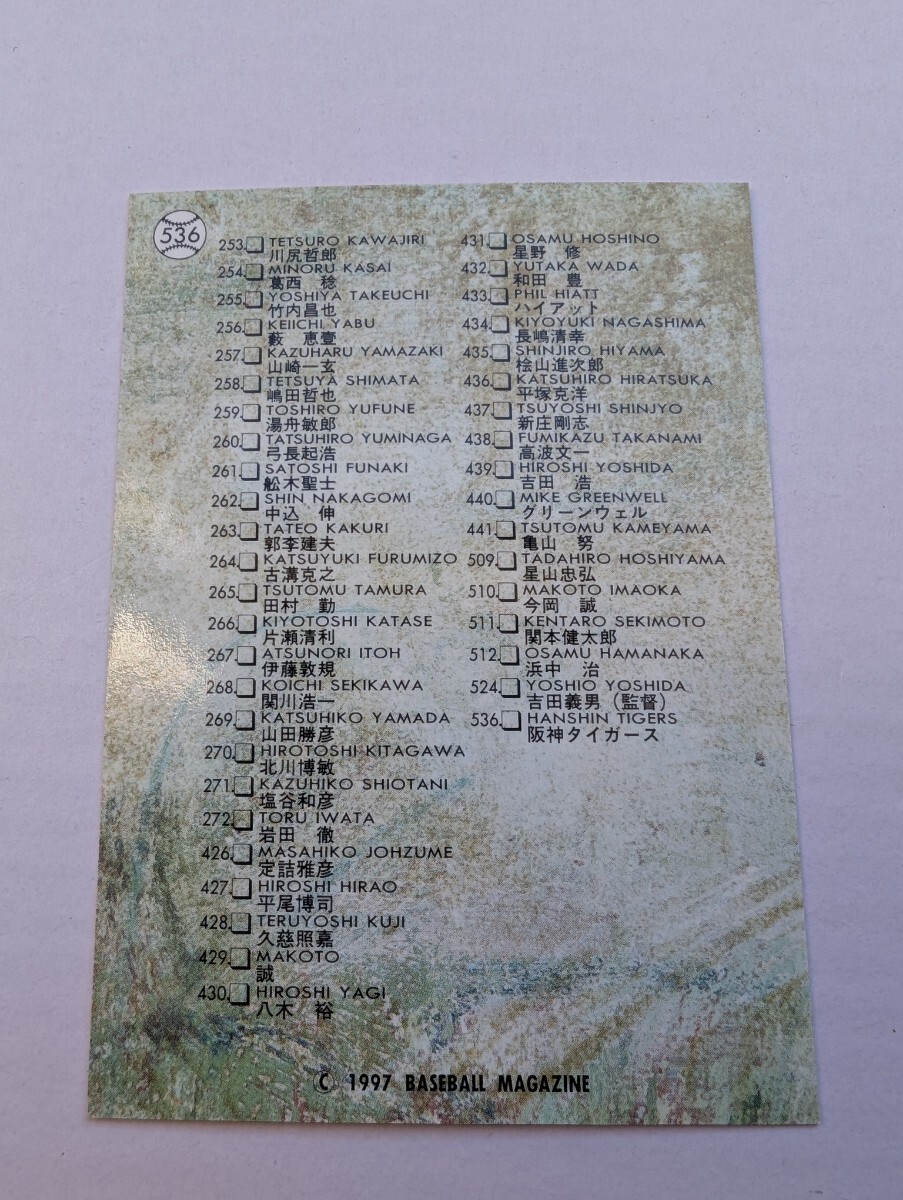 536
253. TETSURO KAWAJIRI
川尻哲郎
254. MINORU KASAI
葛西 稔
255. YOSHIYA TAKEUCHI
竹内昌也
256. KEIICHI YABU
藪 恵壹
257. KAZUHARU YAMAZAKI
山崎一玄
258. TETSUYA SHIMATA
嶋田哲也
259. TOSHIRO YUFUNE
湯舟敏郎
260. TATSUHIRO YUMINAGA
弓長起浩
261. SATOSHI FUNAKI
舩木聖士
262. SHIN NAKAGOMI
中込 伸
263. TATEO KAKURI
郭李建夫
264. KATSUYUKI FURUMIZO
古溝克之
265. TSUTOMU TAMURA
田村 勤
266. KIYOTOSHI KATASE
片瀬清利
267. ATSUNORI ITOH
伊藤敦規
268. KOICHI SEKIKAWA
関川浩一
269. KATSUHIKO YAMADA
山田勝彦
270. HIROTOSHI KITAGAWA
北川博敏
271. KAZUHIKO SHIOTANI
塩谷和彦
272. TORU IWATA
岩田 徹
426. MASAHIKO JOHZUME
定詰雅彦
427. HIROSHI HIRAO
平尾博司
428. TERUYOSHI KUJI
久慈照嘉
429. MAKOTO
誠
430. HIROSHI YAGI
八木 裕
431. OSAMU HOSHINO
星野 修
432. YUTAKA WADA
和田 豊
433. PHIL HIATT
ハイアット
434. KIYOYUKI NAGASHIMA
長嶋清幸
435. SHINJIRO HIYAMA
桧山進次郎
436. KATSUHIRO HIRATSUKA
平塚克洋
437. TSUYOSHI SHINJYO
新庄剛志
438. FUMIKAZU TAKANAMI
高波文一
439. HIROSHI YOSHIDA
吉田 浩
440. MIKE GREENWELL
グリーンウェル
441. TSUTOMU KAMEYAMA
亀山 努
509. TADAHIRO HOSHIYAMA
星山忠弘
510. MAKOTO IMAOKA
今岡 誠
511. KENTARO SEKIMOTO
関本健太郎
512. OSAMU HAMANAKA
浜中 治
524. YOSHIO YOSHIDA
吉田義男（監督）
536. HANSHIN TIGERS
阪神タイガース
© 1997 BASEBALL MAGAZINE